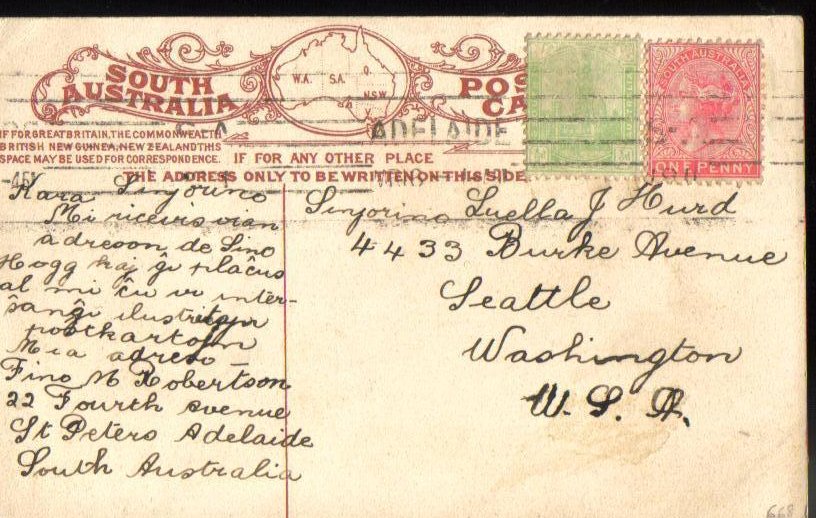 SOUTH
AUSTRALIA
W.A. S.A. Q.
N.S.W
POS
CA
SOUTH AUSTRALIA
ONE PENNY
ADELAIDE
1911
IF FOR GREAT BRITAIN, THE COMMONWEALTH
BRITISH NEW GUINEA, NEW ZEALAND THIS
SPACE MAY BE USED FOR CORRESPONDENCE.
IF FOR ANY OTHER PLACE
THE ADDRESS ONLY TO BE WRITTEN ON THIS SIDE
Kara Sinjorino
Mi ricevis vian
adreson de Sino
Hogg kaj ĝi plaĉus
al mi ĉu vi inter-
ŝanĝi ilustritajn
poŝtkartojn
Mia adreso
Fino M Robertson
22 Fourth avenue
St Peters Adelaide
South Australia
Sinjorino Luella J Hurd
4433 Burke Avenue
Seattle
Washington
U.S.A.
668